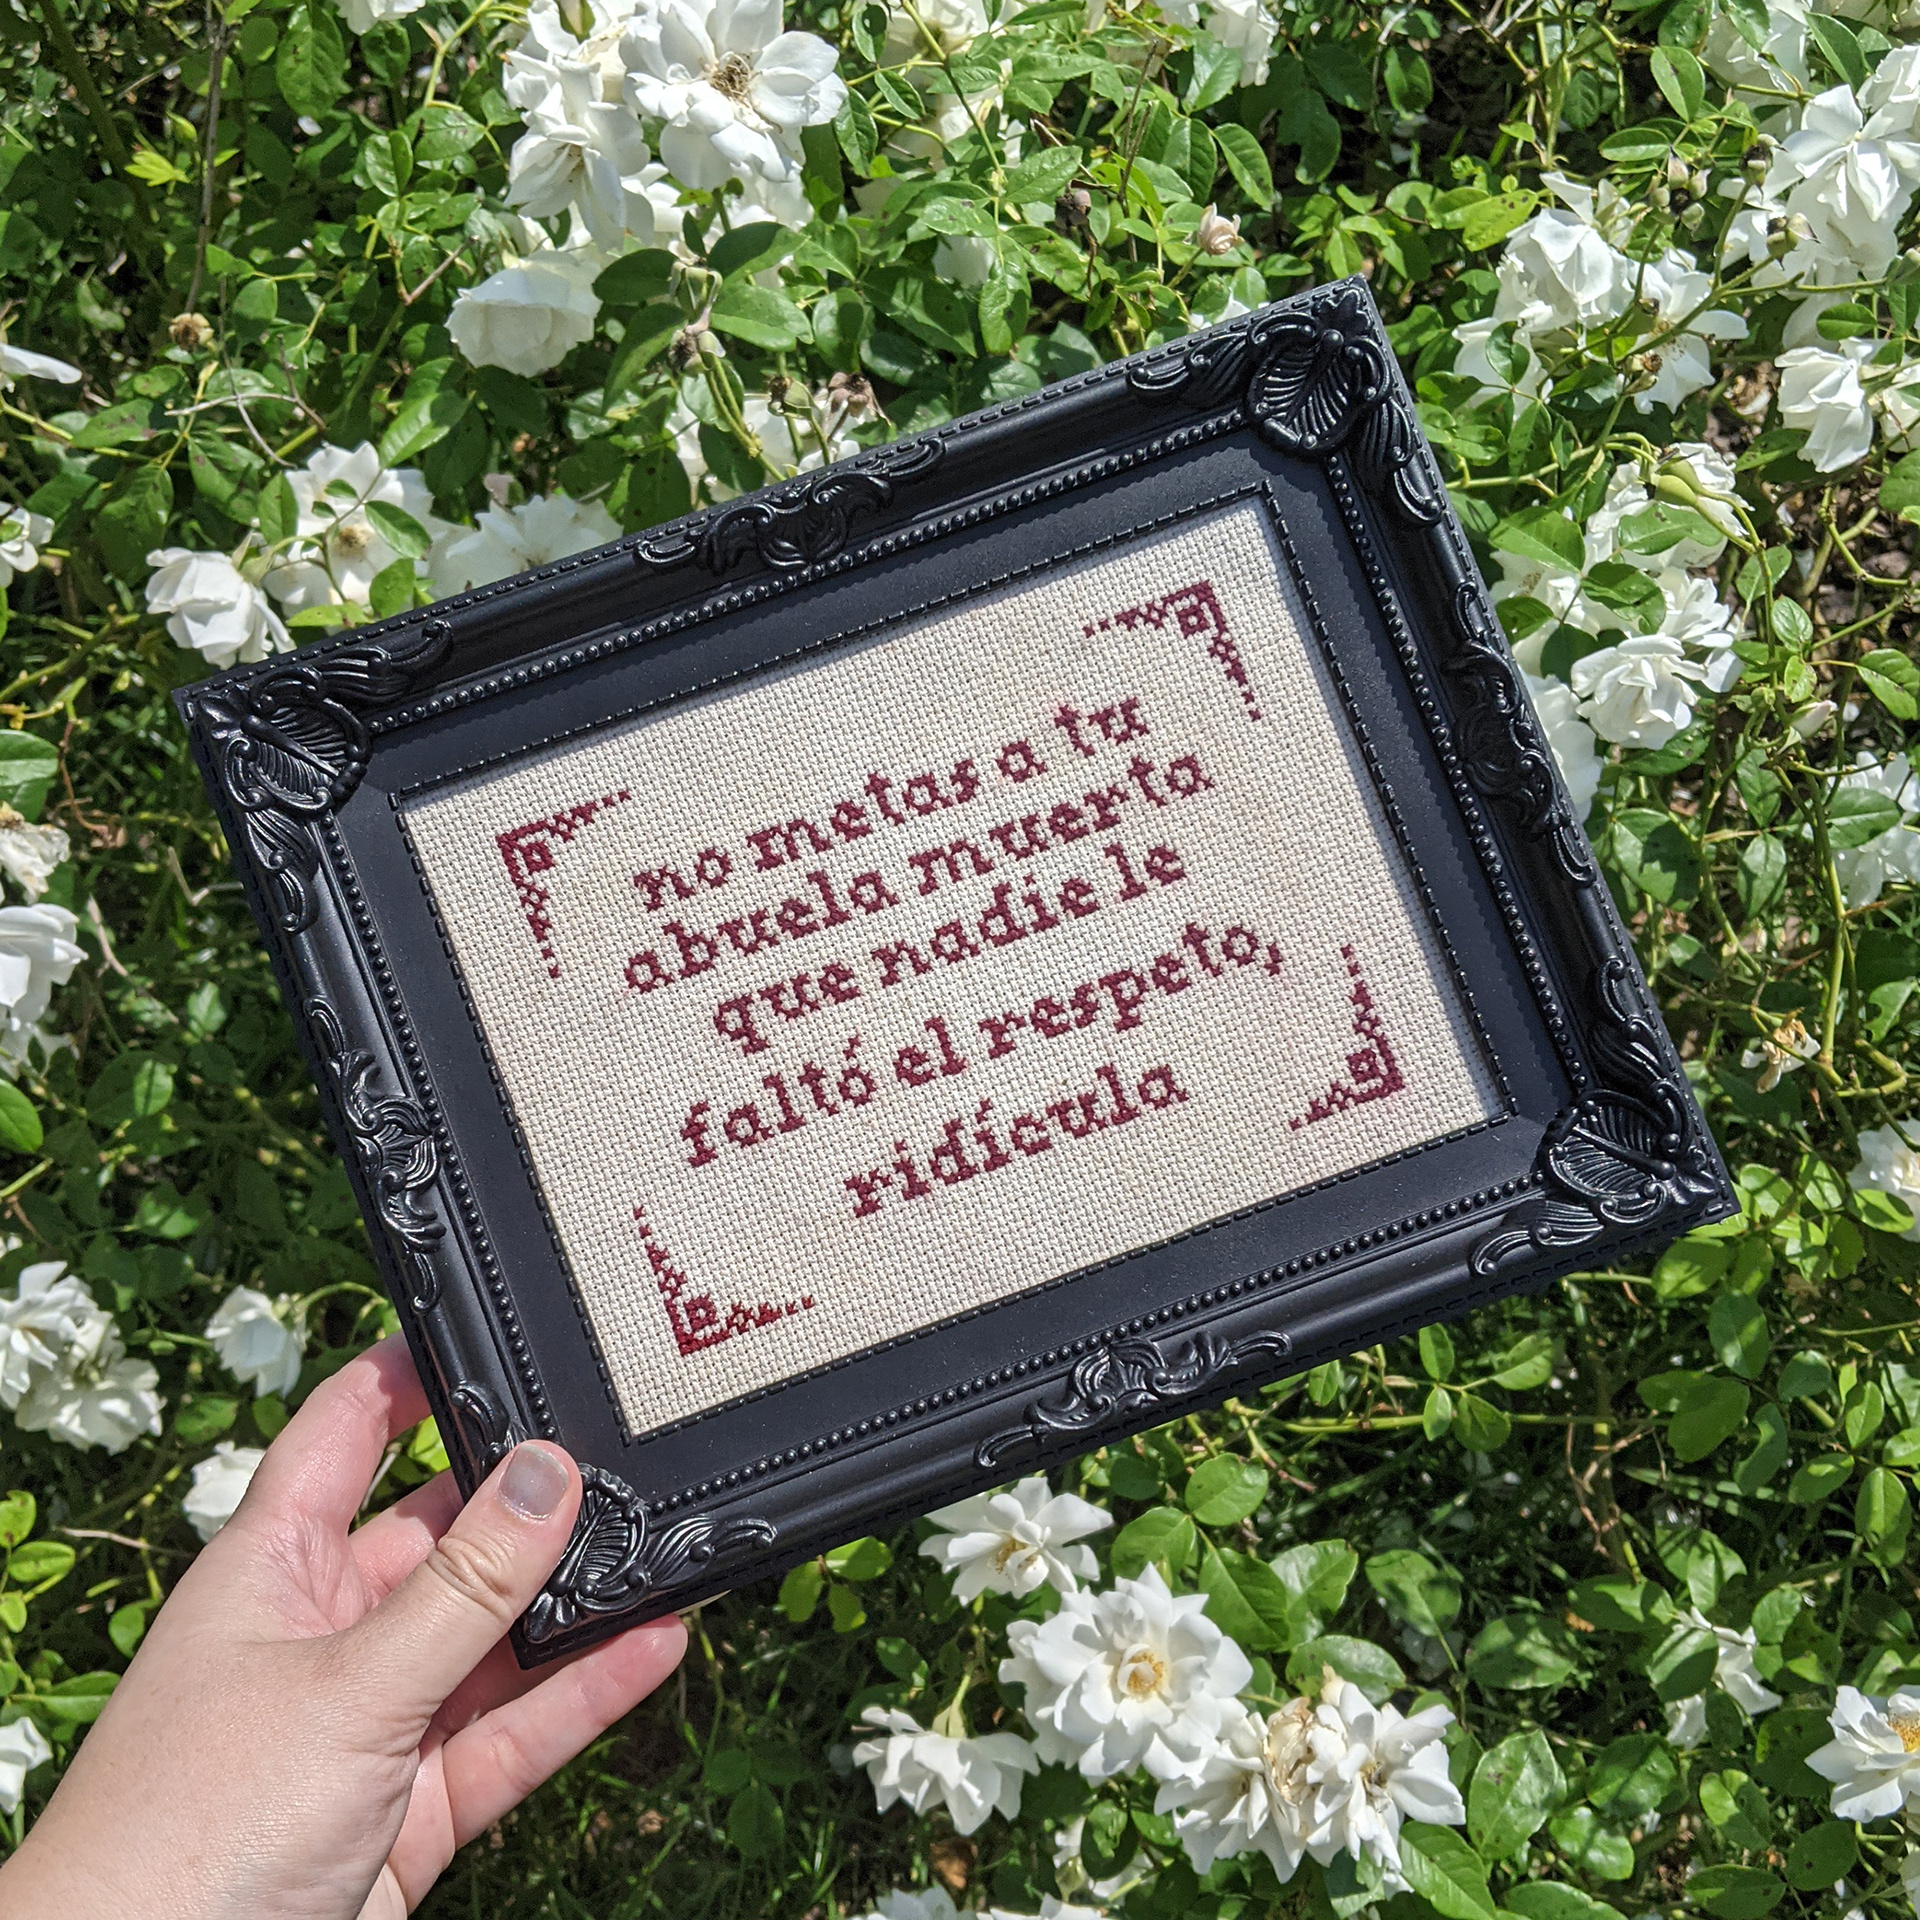 no metas a tu
abuela muerta
que nadie le
faltó el respeto,
ridícula